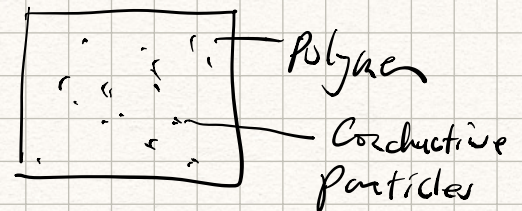 Polymer
Conductive
Particles